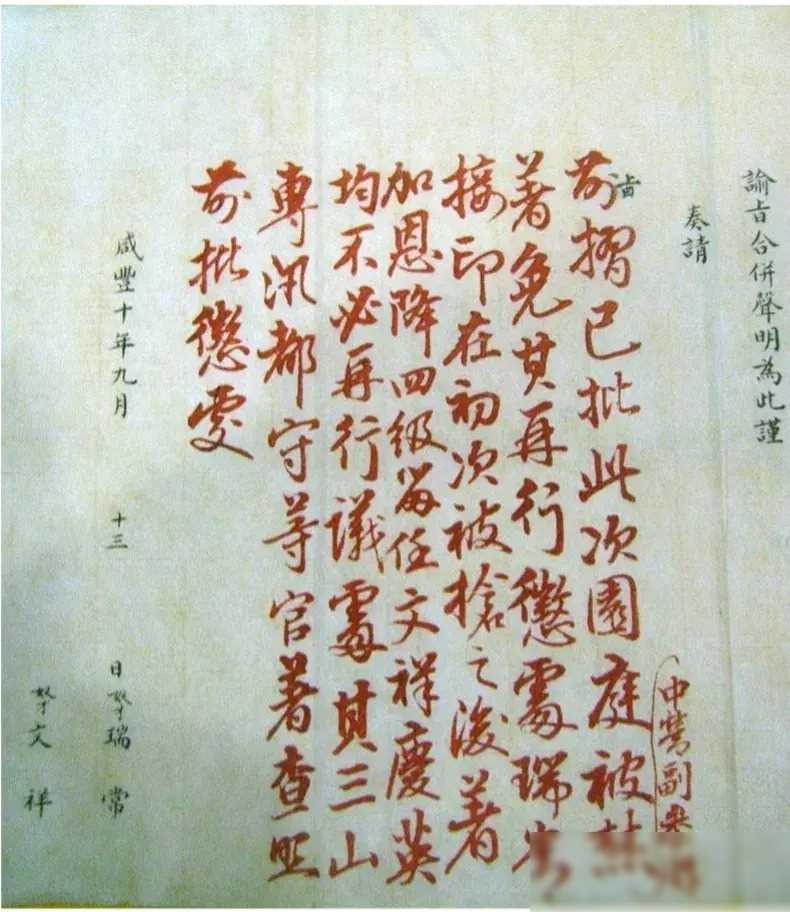 諭旨合併聲明為此謹
奏請
旨
中營副參
前摺已批此次園庭被
著免其再行懲處瑞
接印在初次被搶之後著
加恩降四級留任文祥慶英
均不必再行議處其三山
專汛都守等官著查照
前批懲處
咸豐十年九月 十三 日奴才瑞常
奴才文祥